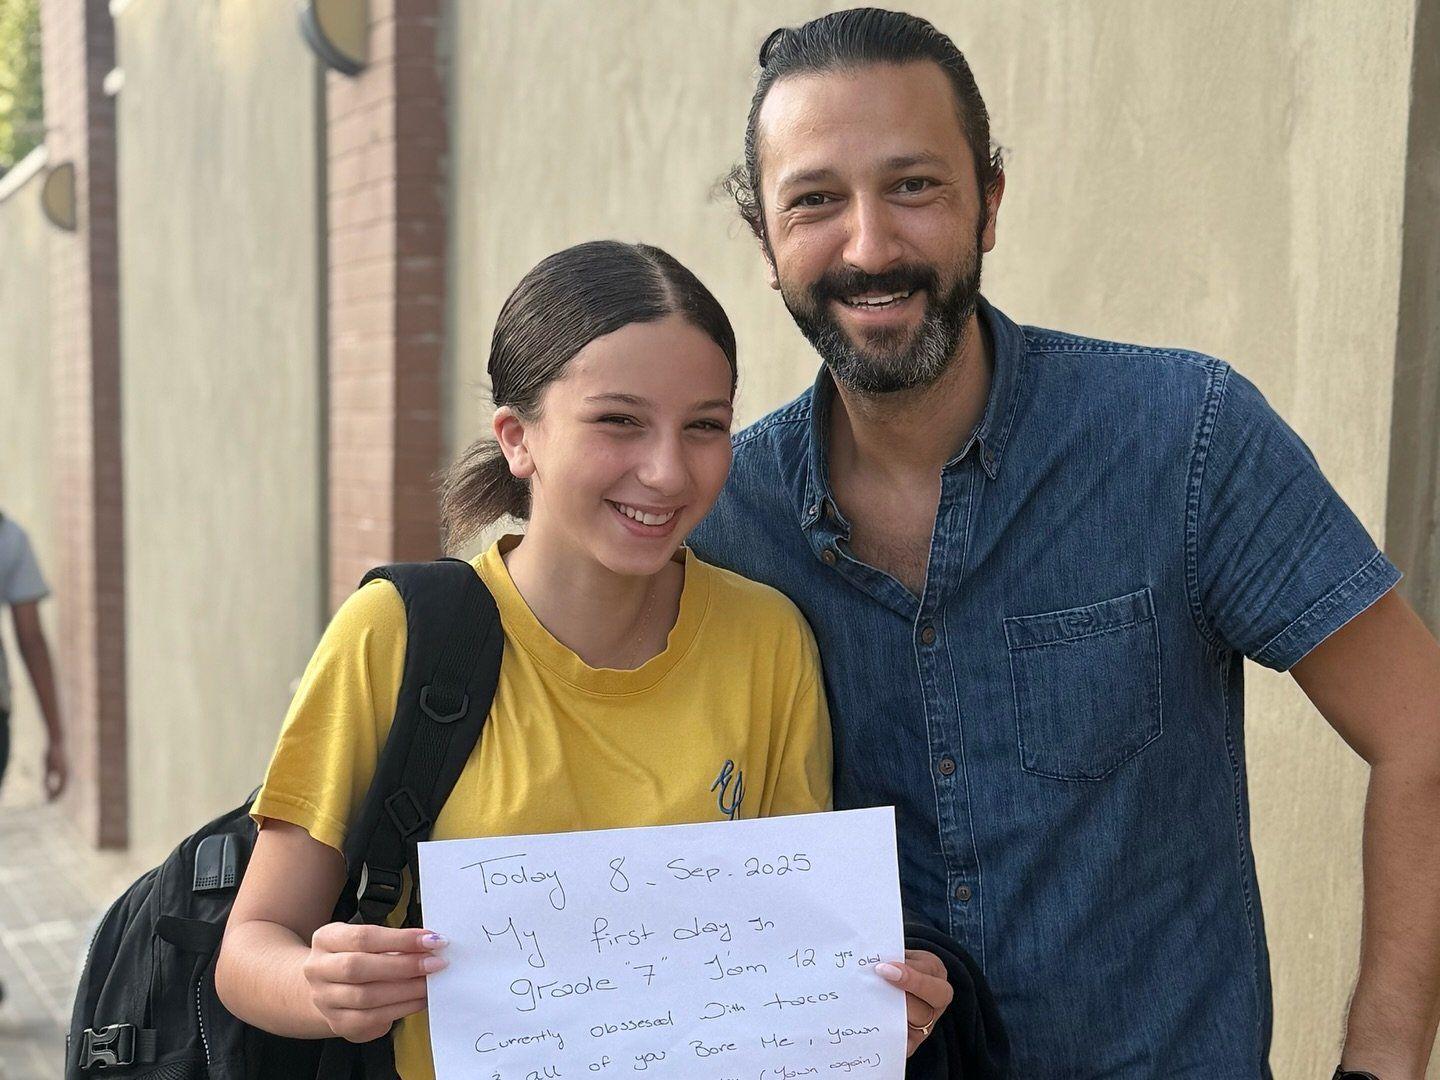 Today 8 - Sep. 2025
My first day In
grade "7" I'am 12 yrs old
Currently obssesed with tacos
& all of you Bore Me, yawn
(yawn again)